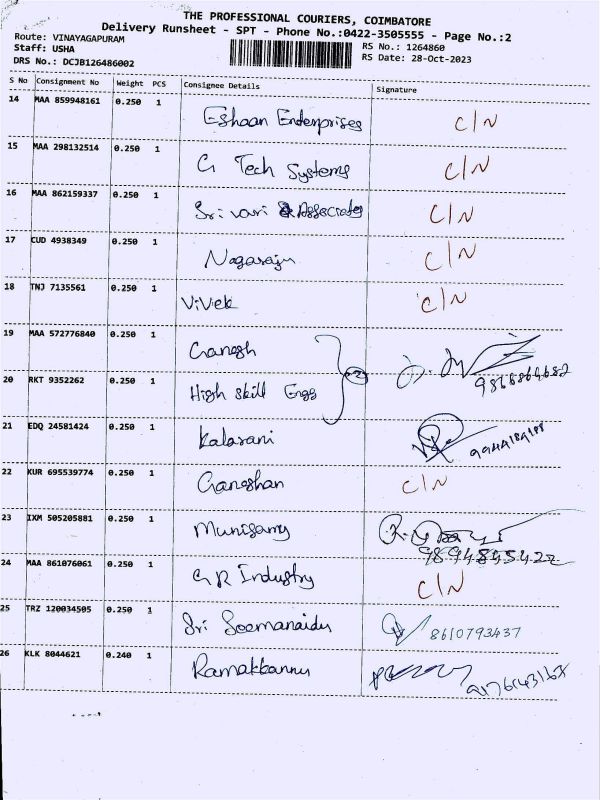 THE PROFESSIONAL COURIERS, COIMBATORE
Delivery Runsheet - SPT - Phone No.:0422-3505555 - Page No.:2
Route: VINAYAGAPURAM
RS No.: 1264860
Staff: USHA
RS Date: 28-Oct-2023
DRS No.: DCJB126486002
S No Consignment No Weight PCS Consignee Details Signature
14 MAA 859948161 0.250 1 Eshaan Enterprises C/N
15 MAA 298132514 0.250 1 G Tech Systems C/N
16 MAA 862159337 0.250 1 Sri vari Associates C/N
17 CUD 4938349 0.250 1 Nagaraju C/N
18 TNJ 7135561 0.250 1 Vivek C/N
19 MAA 572776840 0.250 1 Ganesh
20 RKT 9352262 0.250 1 High skill Engg
21 EDQ 24581424 0.250 1 Kalarani
22 KUR 695539774 0.250 1 Ganeshan C/N
23 IXM 505205881 0.250 1 Munisamy
24 MAA 861076061 0.250 1 G R Industry C/N
25 TRZ 120034505 0.250 1 Sri 8610793437
26 KLK 8044621 0.240 1 Ramakkannu